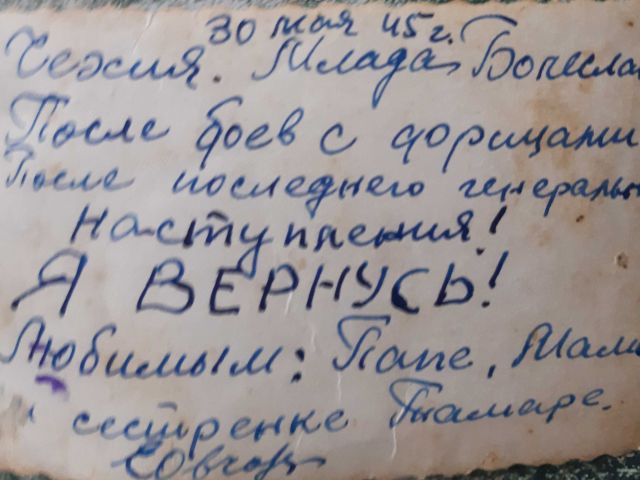 30 мая 45 г.
Чехия. Млада Болесла
После боев с фрицами
После последнего генеральн
наступления!
Я ВЕРНУСЬ!
Любимым: Папе, Мам
и сестренке Тамаре.